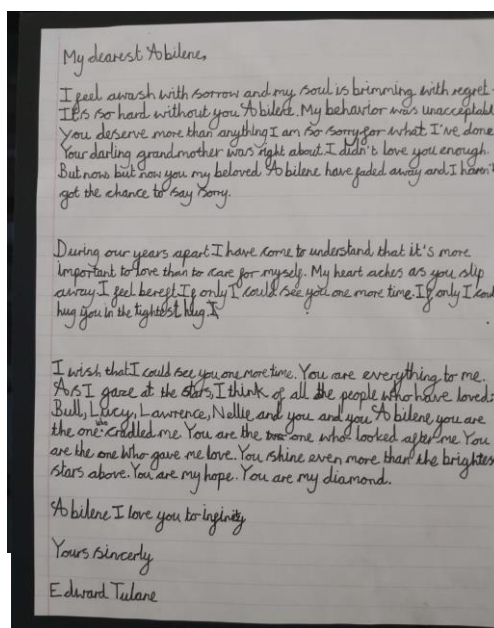 My dearest Abilene,
I feel awash with sorrow and my soul is brimming with regret.
It's so hard without you Abilene. My behavior was unacceptabl
You deserve more than anything I am so sorry for what I've done
Your darling grandmother was right about I didn't love you enough.
But now but now you my beloved Abilene have faded away and I haven't
got the chance to say sorry.
During our years apart I have come to understand that it's more
important to love than to care for myself. My heart aches as you slip
away. I feel bereft. If only I could see you one more time. If only I coul
hug you in the tightest hug I
I wish that I could see you one more time. You are everything to me.
As I gaze at the stars, I think of all the people who have loved:
Bull, Lucy, Lawrence, Nellie and you and you Abilene you are
the one who cradled me. You are the one who looked after me You
are the one who gave me love. You shine even more than the brightes
stars above. You are my hope. You are my diamond.
Abilene I love you to infinity
Yours sincerly
Edward Tulane